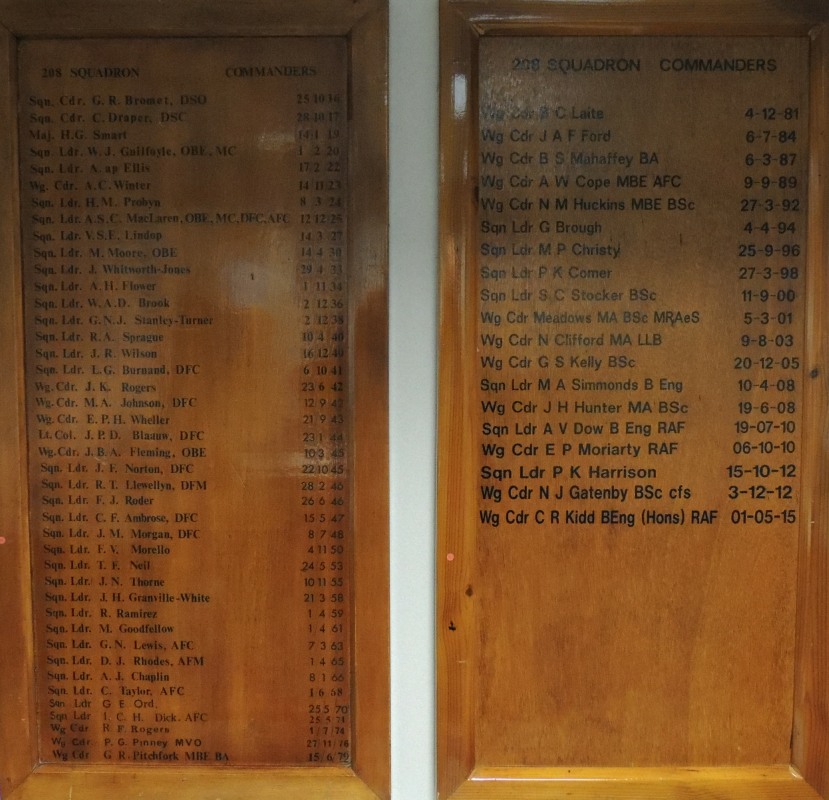 208 SQUADRON COMMANDERS
Sqn. Cdr. G.R. Bromet, DSO 25 10 16
Sqn. Cdr. C. Draper, DSC 28 10 17
Maj. H.G. Smart 14 1 19
Sqn. Ldr. W.J. Guilfoyle, OBE, MC 1 2 20
Sqn. Ldr. A. ap Ellis 17 2 22
Wg. Cdr. A.C. Winter 14 11 23
Sqn. Ldr. H.M. Probyn 8 3 24
Sqn. Ldr. A.S.C. MacLaren, OBE, MC, DFC, AFC 12 12 25
Sqn. Ldr. V.S.E. Lindop 14 3 27
Sqn. Ldr. M. Moore, OBE 14 4 30
Sqn. Ldr. J. Whitworth-Jones 29 4 33
Sqn. Ldr. A.H. Flower 1 11 34
Sqn. Ldr. W.A.D. Brook 2 12 36
Sqn. Ldr. G.N.J. Stanley-Turner 2 12 38
Sqn. Ldr. R.A. Sprague 10 4 40
Sqn. Ldr. J.R. Wilson 16 12 40
Sqn. Ldr. L.G. Burnand, DFC 6 10 41
Wg. Cdr. J.K. Rogers 23 6 42
Wg. Cdr. M.A. Johnson, DFC 12 9 42
Wg. Cdr. E.P.H. Wheller 21 9 43
Lt. Col. J.P.D. Blaauw, DFC 23 1 44
Wg. Cdr. J.B.A. Fleming, OBE 10 3 45
Sqn. Ldr. J.F. Norton, DFC 22 10 45
Sqn. Ldr. R.T. Llewellyn, DFM 28 2 46
Sqn. Ldr. F.J. Roder 26 6 46
Sqn. Ldr. C.F. Ambrose, DFC 15 5 47
Sqn. Ldr. J.M. Morgan, DFC 8 7 48
Sqn. Ldr. F.V. Morello 4 11 50
Sqn. Ldr. T.F. Neil 24 5 53
Sqn. Ldr. J.N. Thorne 10 11 55
Sqn. Ldr. J.H. Granville-White 21 3 58
Sqn. Ldr. R. Ramirez 1 4 59
Sqn. Ldr. M. Goodfellow 1 4 61
Sqn. Ldr. G.N. Lewis, AFC 7 3 63
Sqn. Ldr. D.J. Rhodes, AFM 1 4 65
Sqn. Ldr. A.J. Chaplin 8 1 66
Sqn. Ldr. C. Taylor, AFC 1 6 68
Sqn Ldr G E Ord. 25 5 70
Sqn Ldr I. C. H. Dick. AFC 25 5 71
Wg Cdr R F Rogers 1/7/74
Wg Cdr P. G. Pinney MVO 27/11/76
Wg Cdr G R Pitchfork MBE BA 15/6/79
208 SQUADRON COMMANDERS
Wg Cdr C Laite 4-12-81
Wg Cdr J A F Ford 6-7-84
Wg Cdr B S Mahaffey BA 6-3-87
Wg Cdr A W Cope MBE AFC 9-9-89
Wg Cdr N M Huckins MBE BSc 27-3-92
Sqn Ldr G Brough 4-4-94
Sqn Ldr M P Christy 25-9-96
Sqn Ldr P K Comer 27-3-98
Sqn Ldr S C Stocker BSc 11-9-00
Wg Cdr Meadows MA BSc MRAeS 5-3-01
Wg Cdr N Clifford MA LLB 9-8-03
Wg Cdr G S Kelly BSc 20-12-05
Sqn Ldr M A Simmonds B Eng 10-4-08
Wg Cdr J H Hunter MA BSc 19-6-08
Sqn Ldr A V Dow B Eng RAF 19-07-10
Wg Cdr E P Moriarty RAF 06-10-10
Sqn Ldr P K Harrison 15-10-12
Wg Cdr N J Gatenby BSc cfs 3-12-12
Wg Cdr C R Kidd BEng (Hons) RAF 01-05-15